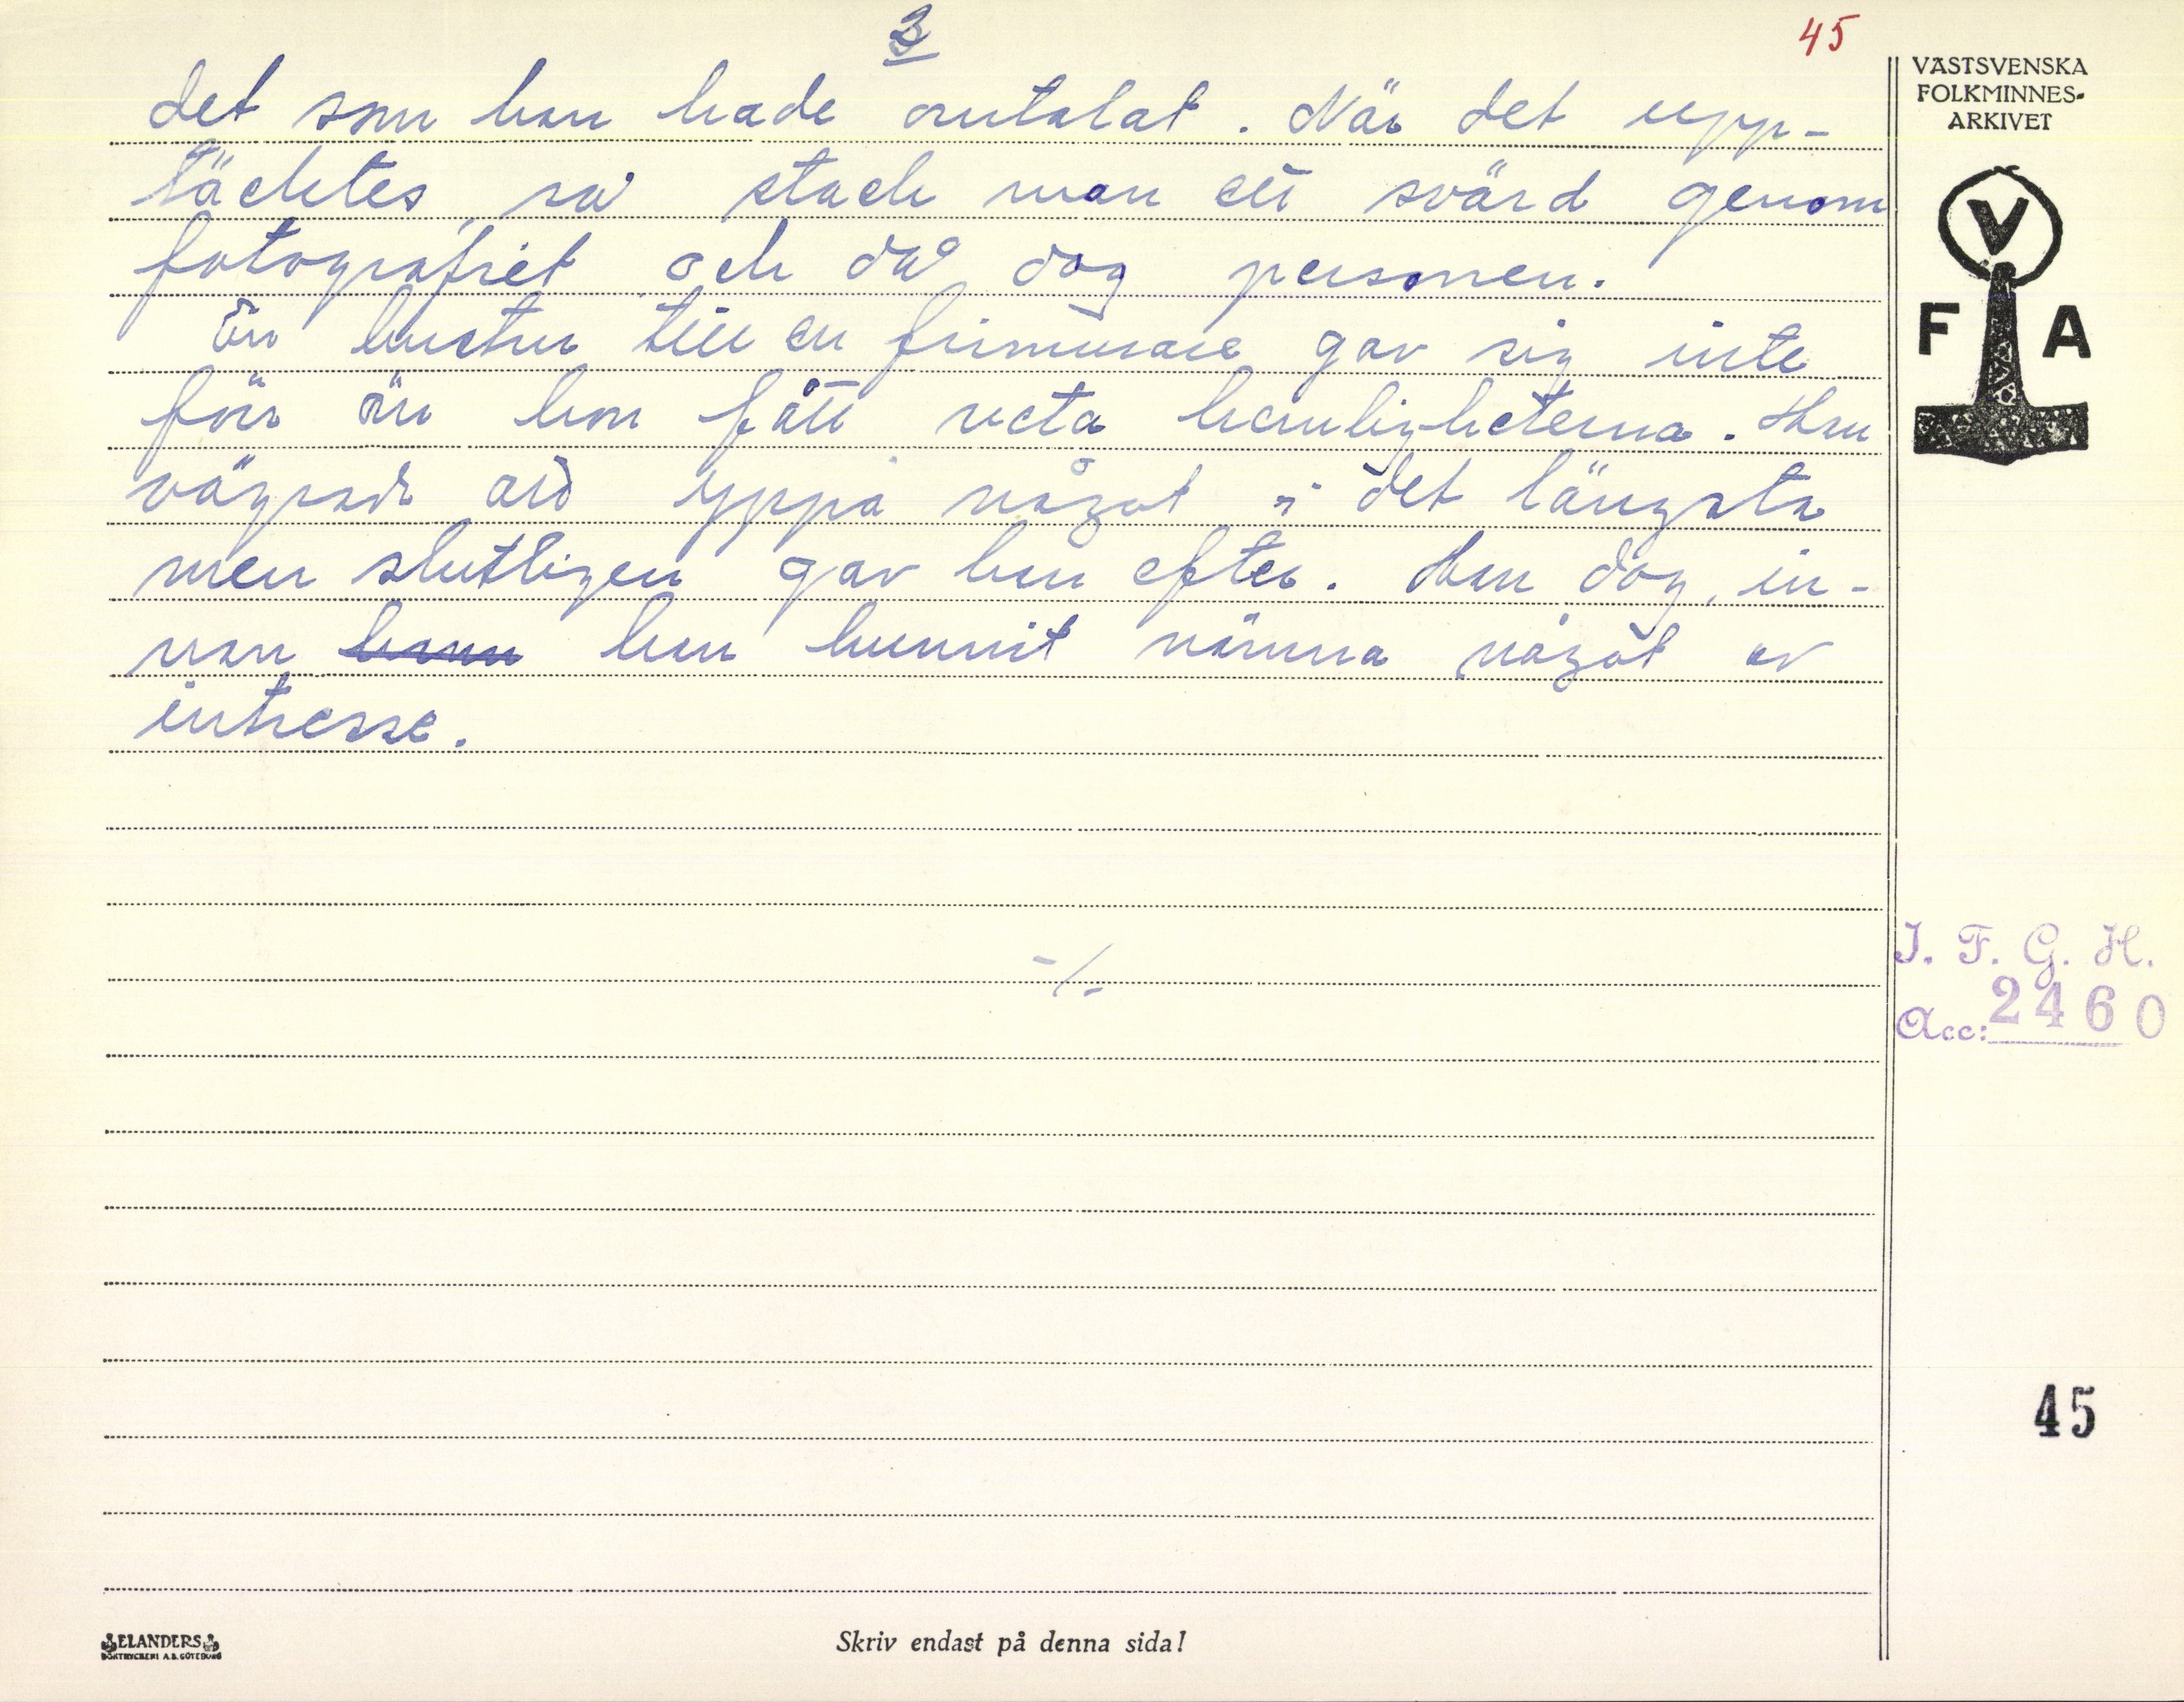 3
45
det som han hade omtalat. När det upp-
täcktes, så stack man ett svärd genom
fotografiet och då dog personen.
En hustru till en frimurare gav sig inte
förr än hon fått veta hemligheterna. Han
vägrade att yppa något i det längsta
men slutligen gav han efter. Han dog, in-
nan hann han hunnit nämna något av
intresse.
-/-
VÄSTSVENSKA
FOLKMINNES-
ARKIVET
V
F A
I. F. G. H.
Acc: 2460
45
ELANDERS
BOKTRYCKERI A.B. GÖTEBORG
Skriv endast på denna sida!